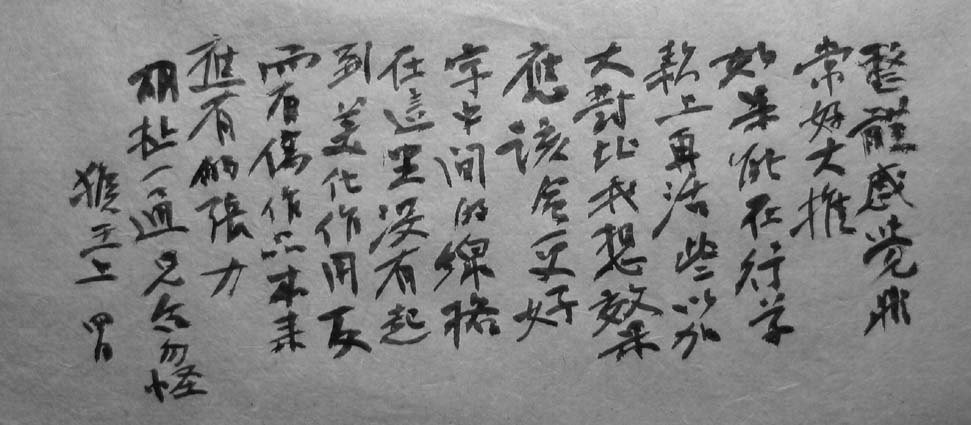 整體感覺非
常好大推
如果能在行草
款上再活些以加
大對比我想效果
應該會更好
字中間的線格
在這里沒有起
到美化作用反
而有傷作品本来
應有的張力
胡扯一通兄台勿怪
猴王上